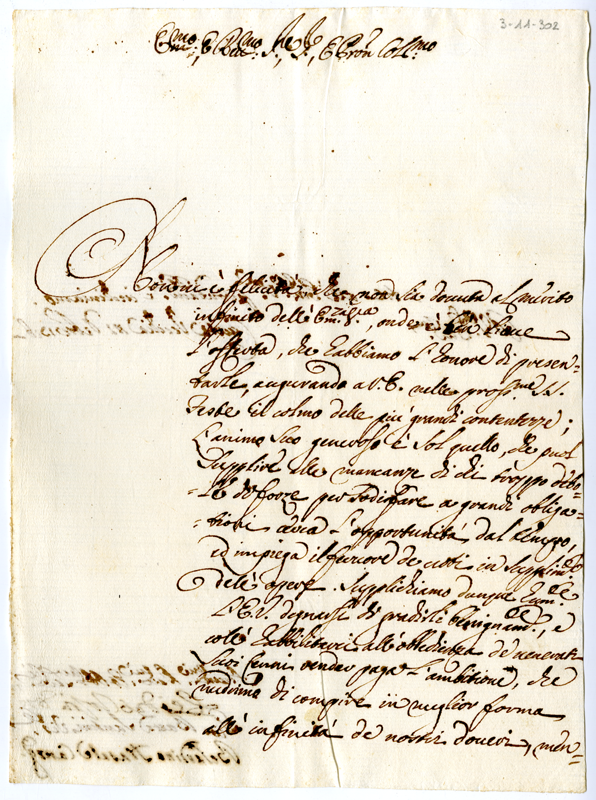 3-11-302
Em:mo, e Rev:mo Sig.re Sig.re, e Pron Col:mo
Non vi è felicità che non sia dovuta al merito
infinito dell'Em:za V.ra, onde è
l'offerta, che habbiamo l'honore di presen-
tarle, augurando a V.E. nelle pross:me SS.
Feste il colmo delle più grandi contentezze;
L'animo Suo generoso è sol quello, che puol
supplire alle mancanze di chi troppo debo-
le di forze per sodisfare a grandi obliga-
tioni cerca l'opportunità dal tempo,
ed impiega il fervore de voti in supplim.to
dell'opere. Supplichiamo dunque hum.te
l'E.V. degnarsi di gradirli benignam.te, e
coll'habbilitarci all'obbedienza de venerati
suoi cenni render paga l'ambitione, che
nutrimo di compire in miglior forma
all'infinità de nostri doveri, men-